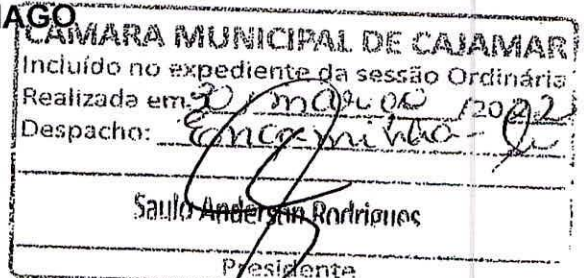 IAGO
CÂMARA MUNICIPAL DE CAJAMAR
Incluído no expediente da sessão Ordinária
Realizada em 30 / março /2022
Despacho: Encaminha-se
Saulo Anderson Rodrigues
Presidente